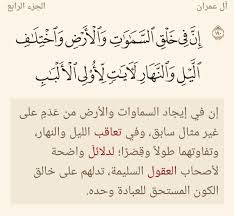 آل عمران الجزء الرابع
١٩٠ إِنَّ فِي خَلْقِ السَّمَاوَاتِ وَالْأَرْضِ وَاخْتِلَافِ
اللَّيْلِ وَالنَّهَارِ لَآيَاتٍ لِّأُولِي الْأَلْبَابِ
إن في إيجاد السماوات والأرض من عَدَمٍ على
غير مثال سابق، وفي تعاقب الليل والنهار،
وتفاوتهما طولًا وقِصَرًا؛ لدلائل واضحة
لأصحاب العقول السليمة، تدلهم على خالق
الكون المستحق للعبادة وحده.